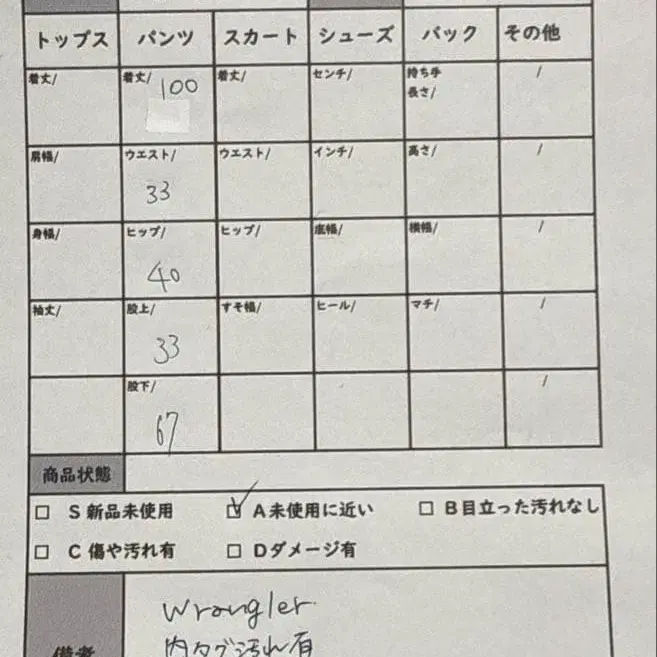 トップス パンツ スカート シューズ バック その他
着丈/ 着丈/ 100 着丈/ センチ/ 持ち手 /
長さ/
肩幅/ ウエスト/ ウエスト/ インチ/ 高さ/ /
33
身幅/ ヒップ/ ヒップ/ 底幅/ 横幅/ /
40
袖丈/ 股上/ すそ幅/ ヒール/ マチ/ /
33
股下/ /
67
商品状態
□ S 新品未使用 ☑ A未使用に近い □ B目立った汚れなし
□ C 傷や汚れ有 □ Dダメージ有
Wrangler
備考 内タグ汚れ有